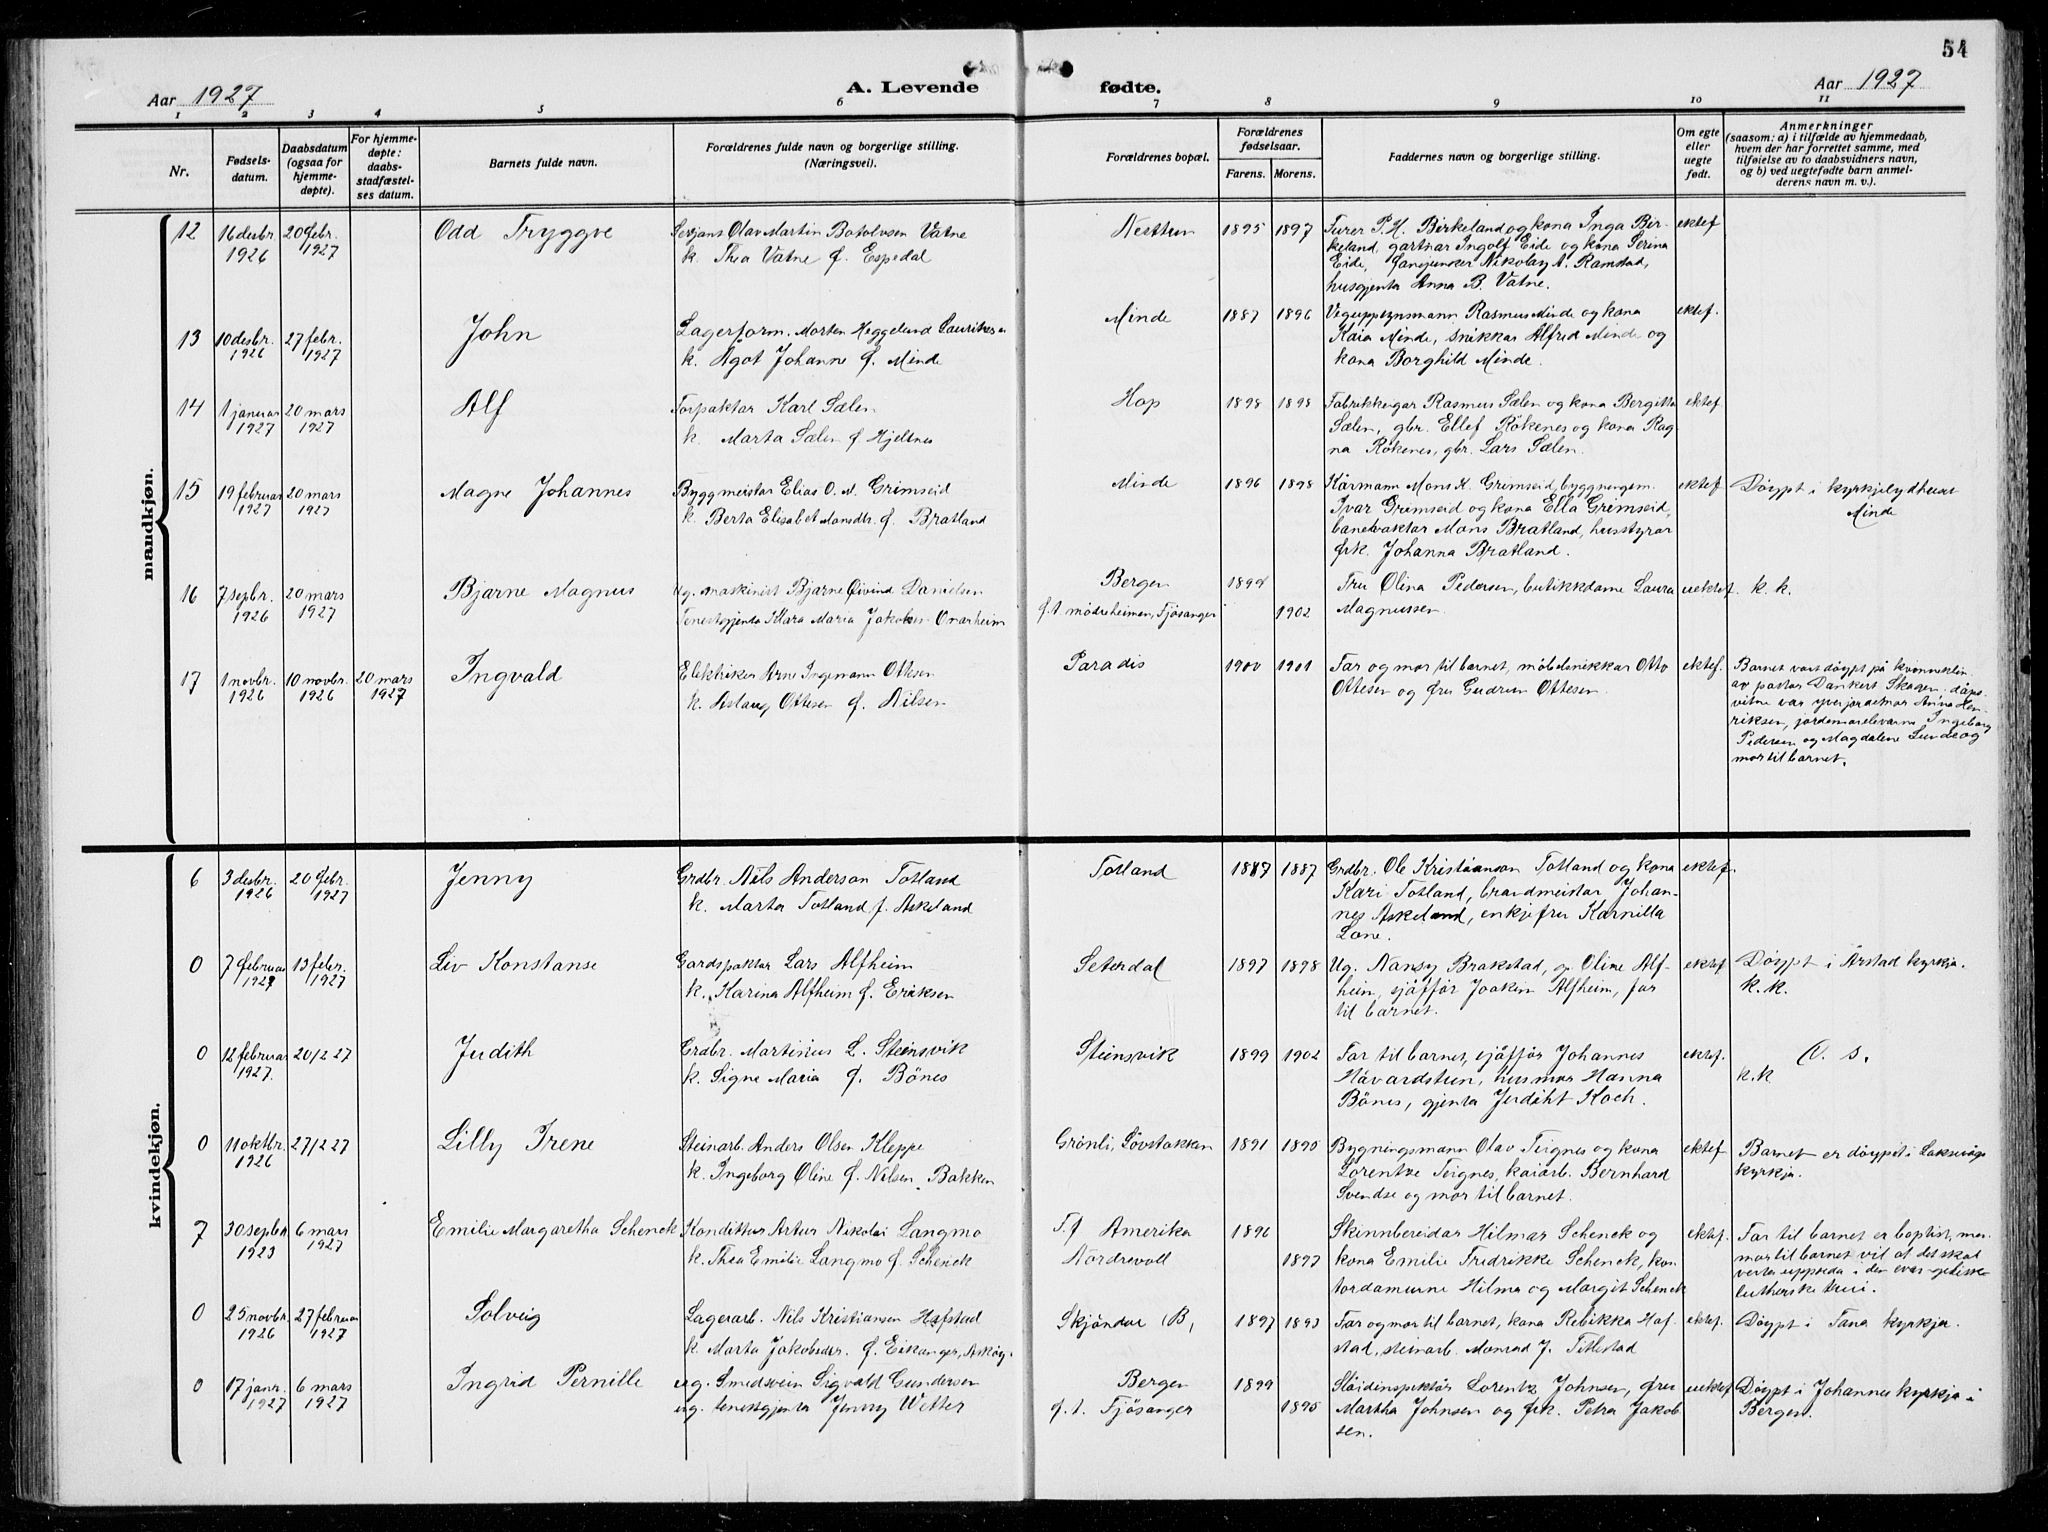 54
Aar 1927
A. Levende fødte.
Aar 1927
1 2 3 4 5 6 7 8 9 10 11
Nr.
Fødsels-
datum.
Daabsdatum
(ogsaa for
hjemme-
døpte).
For hjemme-
døpte:
daabs-
stadfæstel-
ses datum.
Barnets fulde navn.
Forældrenes fulde navn og borgerlige stilling.
(Næringsvei).
Forældrenes bopæl.
Forældrenes
fødselsaar.
Farens. Morens.
Faddernes navn og borgerlige stilling.
Om egte
eller
uegte
født.
Anmerkninger
(saasom: a) i tilfælde av hjemmedaab,
hvem der har forrettet samme, med
tilføielse av to daabsvidners navn,
og b) ved uegtefødte barn anmel-
derens navn m. v.).
mandkjøn.
12
16 desbr.
1926
20 febr.
1927
Odd Tryggve
Serjant Olav Martin Botolvsen Vatne
k. Thea Vatne f. Espedal
Nesttun
1895 1897
Furer P. H. Birkeland og kona Inga Bir-
keland, gartnar Ingolf Eide og kona Serina
Eide, fanejunker Nikolay A. Ramstad,
husgjenta Anna B. Vatne.
ektef
13
10 desbr.
1926
27 febr.
1927
John
Lagerform. Morten Heggelund Lauritsen
k. Ågot Johanne f. Minde
Minde
1887 1896
Veguppsynsmann Rasmus Minde og kona
Kaia Minde, snikkar Alfred Minde og
kona Borghild Minde.
ektef.
14
1 januar
1927
20 mars
1927
Alf
Forpaktar Karl Sælen
k. Marta Sælen f. Hjeltnes
Hop
1898 1898
Fabrikkeigar Rasmus Sælen og kona Bergitta
Sælen, gbr. Ellef Rökenes og kona Rag-
na Rökenes, gbr. Lars Sælen.
ektef
15
19 februar
1927
20 mars
1927
Magne Johannes
Byggmeistar Elias O. M. Grimseid
k. Berta Elisabet Monsdtr. f. Bratland
Minde
1896 1898
Körmann Mons K. Grimseid, byggningsm.
Ivar Grimseid og kona Ella Grimseid,
banevaktar Mons Bratland, husstyrar
frk. Johanna Bratland.
ektef
Döypt i kyrkjelydhuset
Minde
16
7 sepbr.
1926
20 mars
1927
Bjarne Magnus
Ug. maskinist Bjarne Øivind Danielsen
Tenestgjenta Klara Maria Jakobsen Onarheim
Bergen
f. t. mödreheimen, Fjösanger
1899
1902
Fru Olina Pedersen, butikkdame Laura
Magnussen.
uektef.
k. k.
17
1 novbr.
1926
10 novbr.
1926
20 mars
1927
Ingvald
Elektriker Arne Ingemann Ottesen
k. Aslaug Ottesen f. Nilsen
Paradis
1900 1901
Far og mor til barnet, möbelsnikkar Otto
Ottesen og fru Gudrun Ottesen.
ektef.
Barnet vart döypt på kvinneklin.
av pastor Dankert Skagen, dåps-
vitne var yverjordmor Anna Hen-
riksen, jordmorelevarne Ingeborg
Pedersen og Magdalene Lunde og
mor til barnet.
kvindekjøn.
6
3 desbr.
1926
20 febr.
1927
Jenny
Grdbr. Nils Anderson Totland
k. Marta Totland f. Askeland
Totland
1887 1887
Grdbr. Ole Kristianson Totland og kona
Kari Totland, brandmeistar Johan-
nes Askeland, enkjefru Karnilla
Lone.
ektef.
0
7 februar
1927
13 febr.
1927
Liv Konstanse
Gardspaktar Lars Alfheim
k. Karina Alfheim f. Eriksen
Seterdal
1897 1898
Ug. Nansy Brakstad, g. Oline Alf-
heim, sjåffør Joakim Alfheim, far
til barnet.
ektef
Döypt i Årstad kyrkja.
k. k.
0
12 februar
1927.
20/2 27
Judith
Grdbr. Martinus L. Steinsvik
k. Signe Maria f. Bönes
Steinsvik
1899 1902
Far til barnet, sjåffør Johannes
Håvardstun, husmor Hanna
Bönes, gjenta Judiht Koch.
ektef.
D. s.
k. k
0
11 oktbr.
1926
27/2 27
Lilly Irene
Steinarb. Anders Olsen Kleppe
k. Ingeborg Oline f. Nilsen Bakken
Grönli, Lövstakken
1891 1895
Bygningsmann Olav Teignes og kona
Lorentze Teignes, kaiarb. Bernhard
Svendse og mor til barnet.
ektef
Barnet er döypt i Laksevåg
kyrkja.
7
30 sepbr
1923
6 mars
1927
Emilie Margaretha Schenck
Konditter Artur Nikolai Langmo
k. Thea Emilie Langmo f. Schenck
T. f Amerika
Nordrevoll
1896
1897
Skinnbereidar Hilmar Schenck og
kona Emilie Fredrikke Schenck, kon-
tordamurne Hilma og Margit Schenck
ektef.
Far til barnet er baptist, men
mor til barnet vil at det skal
verta uppseda i den evangeliske
lutherske trui.
0
25 novbr.
1926
27 februar
1927
Solveig
Lagerarb. Nils Kristiansen Hafstad
k. Marta Jakobsdtr. f. Eikanger, Askøy.
Skjöndal (B)
1897 1893
Far og mor til barnet, kona Rebikka Haf-
stad, steinarb. Monrad J. Titlestad
ektef.
Döypt i Fana kyrkja.
0
17 janr.
1927
6 mars
1927
Ingrid Pernille
ug. Smedsvein Sigvald Gundersen
ug. tenestgjenta Jenny Wetter
Bergen
f. t. Fjösanger
1899
1895
Slöidinspektör Lorentz Johnsen, fru
Martha Johnsen og frk. Petra Jakob-
sen.
uektef
Döypt i Johannes kyrkja i
Bergen.